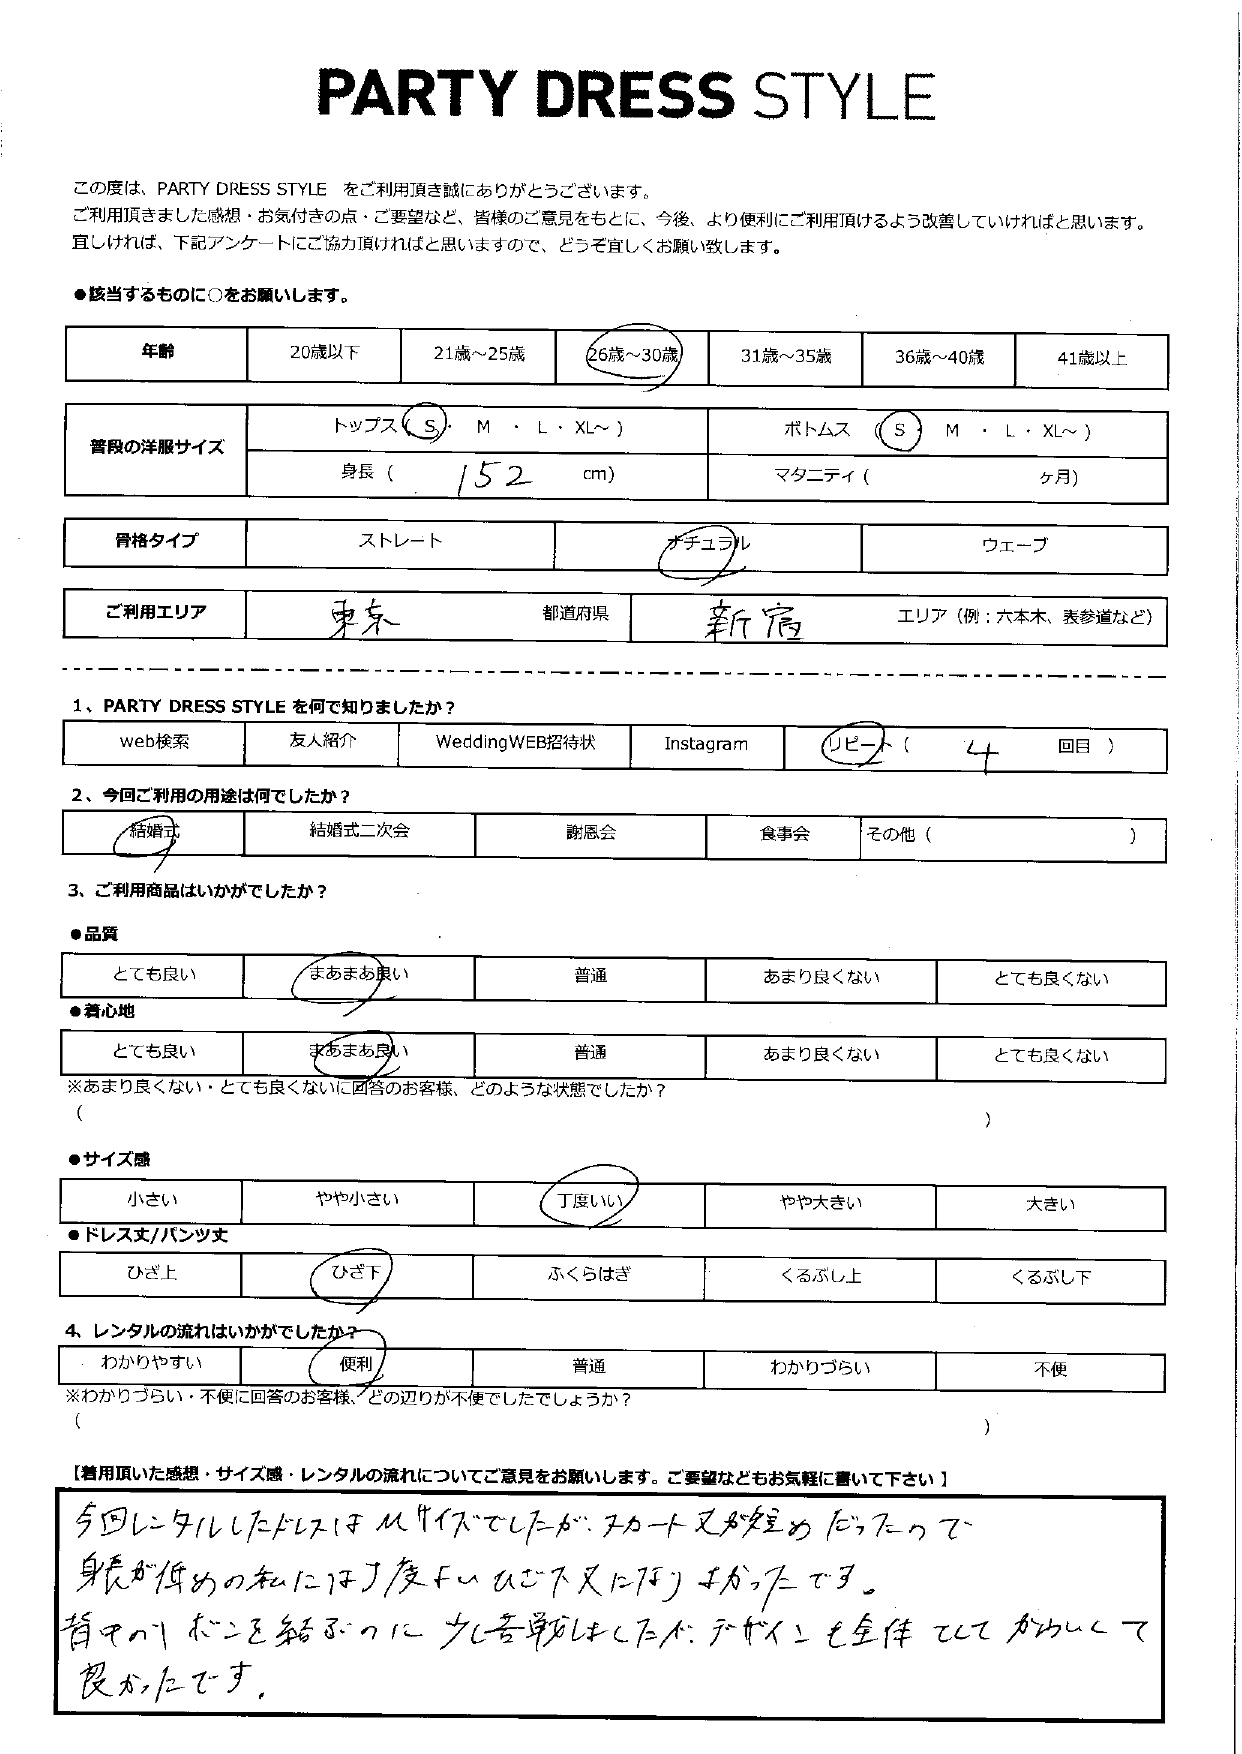 PARTY DRESS STYLE
この度は、PARTY DRESS STYLE をご利用頂き誠にありがとうございます。
ご利用頂きました感想・お気付きの点・ご要望など、皆様のご意見をもとに、今後、より便利にご利用頂けるよう改善していければと思います。
宜しければ、下記アンケートにご協力頂ければと思いますので、どうぞ宜しくお願い致します。
●該当するものに○をお願いします。
年齢 20歳以下 21歳～25歳 26歳～30歳 31歳～35歳 36歳～40歳 41歳以上
普段の洋服サイズ トップス( S ・ M ・ L ・ XL～ ) ボトムス ( S ・ M ・ L ・ XL～ )
身長 ( 152 cm) マタニティ ( ヶ月)
骨格タイプ ストレート ナチュラル ウェーブ
ご利用エリア 東京 都道府県 新宿 エリア（例：六本木、表参道など）
1、PARTY DRESS STYLE を何で知りましたか？
web検索 友人紹介 WeddingWEB招待状 Instagram リピート ( 4 回目 )
2、今回ご利用の用途は何でしたか？
結婚式 結婚式二次会 謝恩会 食事会 その他 ( )
3、ご利用商品はいかがでしたか？
●品質
とても良い まあまあ良い 普通 あまり良くない とても良くない
●着心地
とても良い まあまあ良い 普通 あまり良くない とても良くない
※あまり良くない・とても良くないに回答のお客様、どのような状態でしたか？
( )
●サイズ感
小さい やや小さい 丁度いい やや大きい 大きい
●ドレス丈/パンツ丈
ひざ上 ひざ下 ふくらはぎ くるぶし上 くるぶし下
4、レンタルの流れはいかがでしたか？
わかりやすい 便利 普通 わかりづらい 不便
※わかりづらい・不便に回答のお客様、どの辺りが不便でしたでしょうか？
( )
【着用頂いた感想・サイズ感・レンタルの流れについてご意見をお願いします。ご要望などもお気軽に書いて下さい 】
今回レンタルしたドレスはMサイズでしたが、スカート丈が短めだったので
身長が低めの私には丁度よいひざ下丈になりよかったです。
背中のリボンを結ぶのに少し苦戦しましたが、デザインも全体としてかわいくて
良かったです。